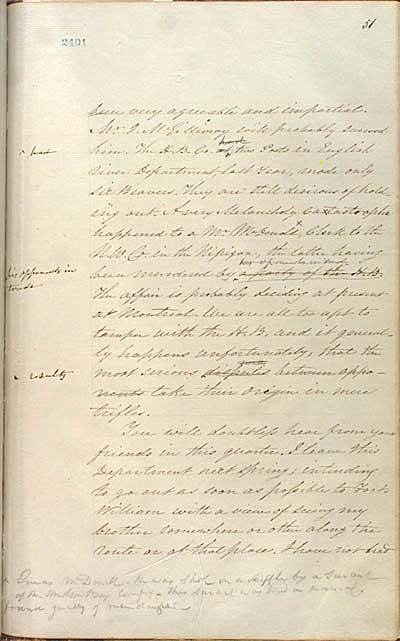 51
2401
been very agreeable and impartial.
Mr. J. McGillivray will probably succeed
had
him. The H.B. Co. of two Posts in English
River Department, last Year, made only
six Beavers. They are still desirous of hold
ing out. A very Melancholy Catastrophe
happened to a Mr. McDonell, Clerk to the
N.W. Co. in the Nipigon; the latter having
his opponents in trade
been murdered by a party of the H.B.
The affair is probably deciding at present
at Montreal. We are all too apt to
tamper with the H.B. and it general-
ly happens unfortunately, that the
most serious disputes between oppo-
nents take their origin in mere
trifles.
You will doubtless hear from your
friends in this quarter. I leave this
Department next spring; intending
to go out as soon as possible to Fort
William with a view of seeing my
brother somewhere or other along the
route or at that place. I have not had
had
his opponents in
trade
results
Eneas McDonell. He was shot in a scuffle by a servant
of the Hudson Bay Compy - this servant was tried in Montreal
found guilty of manslaughter